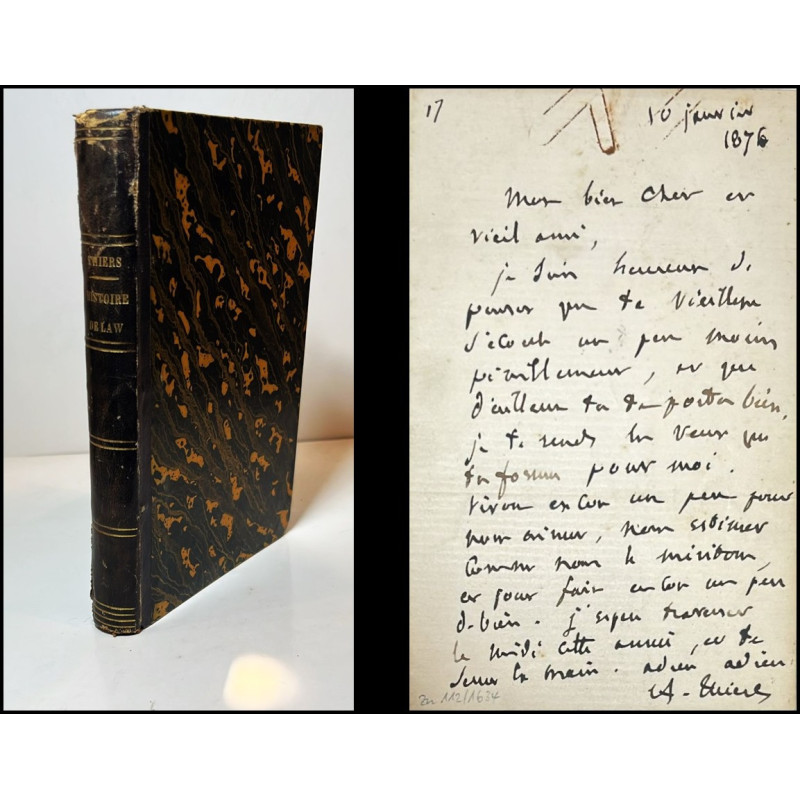 THIERS
HISTOIRE
DE LAW
17
10 janvier
1876
Mon bien cher et
vieil ami,
je suis heureux de
penser que ta vieillesse
s'écoule un peu moins
péniblement, et que
d'ailleurs tu te portes bien,
je te rends les vœux que
tu formes pour moi.
Vivons encor un peu pour
nous aimer, nous estimer
comme nous le méritons,
et pour faire encor un peu
de bien. j'espère traverser
le midi cette année, et te
serrer la main. adieu adieu
A. Thiers
Zu 112/1634